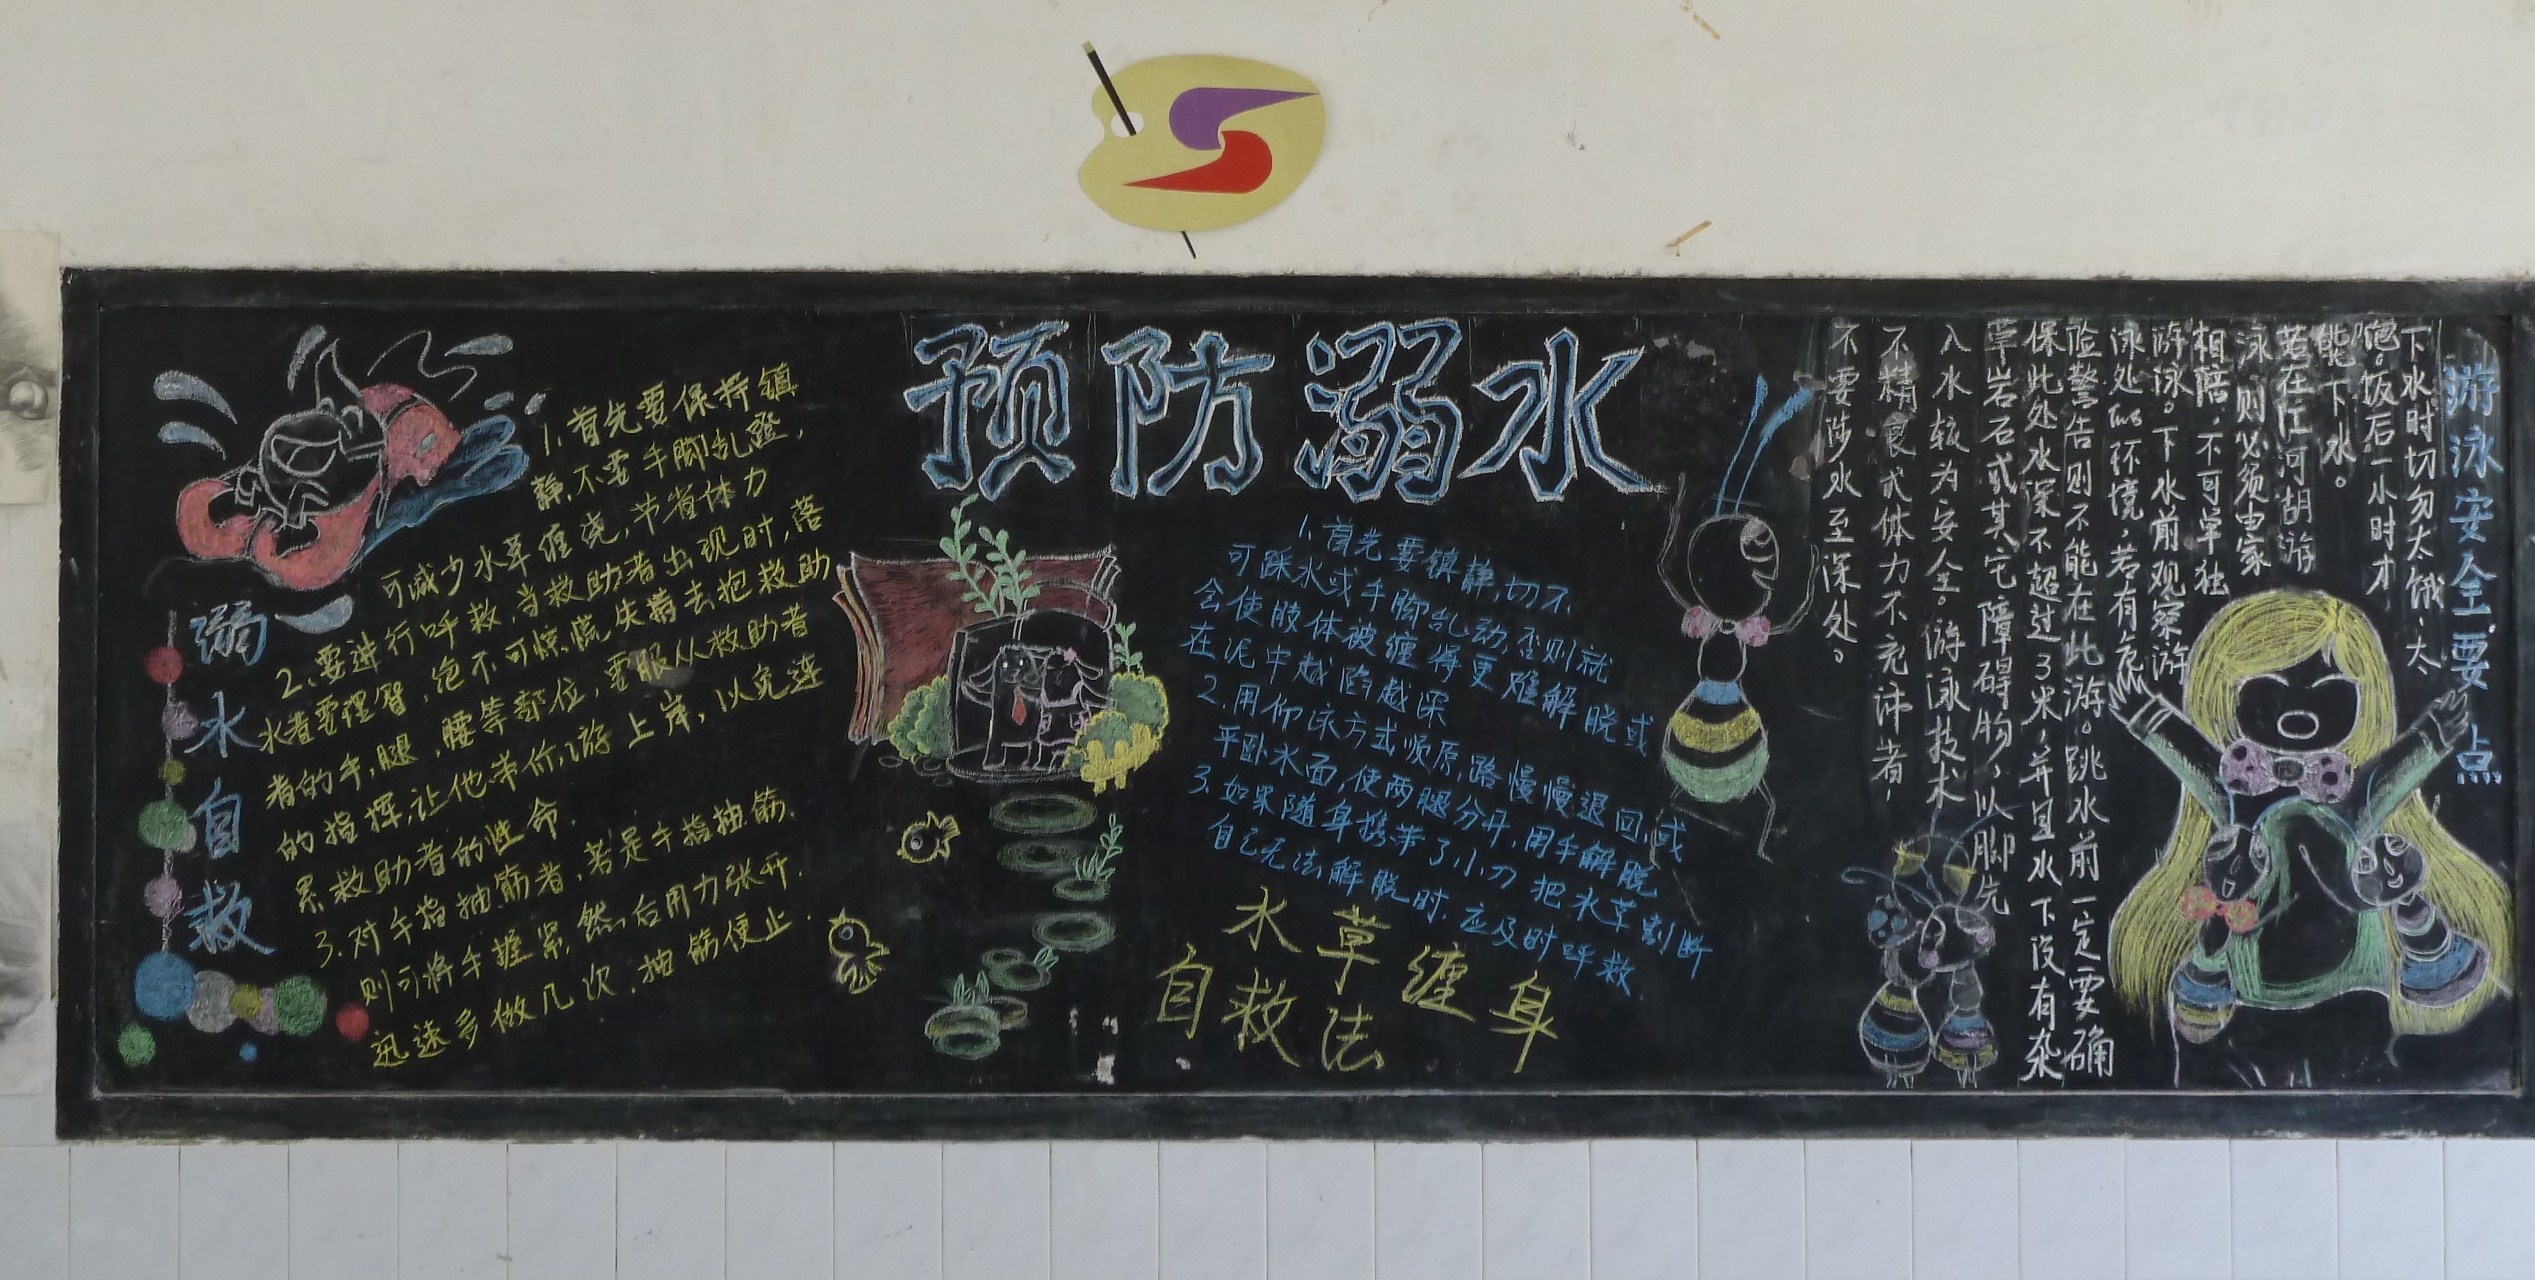 预防溺水
溺水自救
1、首先要保持镇
静,不要手脚乱蹬,
可减少水草缠绕,节省体力
2、要进行呼救,当救助者出现时,落
水者要理智,绝不可惊慌失措去抱救助
者的手,腿,腰等部位,要服从救助者
的指挥,让他带你游上岸,以免连
累救助者的性命.
3.对手指抽筋者,若是手指抽筋.
则可将手握紧,然后用力张开.
迅速多做几次,抽筋便止.
1、首先要镇静,切不
可踩水或手脚乱动,否则就
会使肢体被缠得更难解脱或
在泥中越陷越深
2.用仰泳方式顺原路慢慢退回,或
平卧水面,使两腿分开,用手解脱
3.如果随身携带了小刀把水草割断
自己无法解脱时.应及时呼救.
水草缠身
自救法
游泳安全要点
下水时切勿太饿、太
饱。饭后一小时才
能下水。
若在江河胡游
泳则必须由家
相陪,不可单独
游泳。下水前观察游
泳处的环境,若有危
险警告则不能在此游。跳水前一定要确
保此处水深不超过3米,并且水下没有杂
草岩石或其它障碍物,以脚先
入水较为安全。游泳技术
不精良或体力不充沛者,
不要涉水至深处。